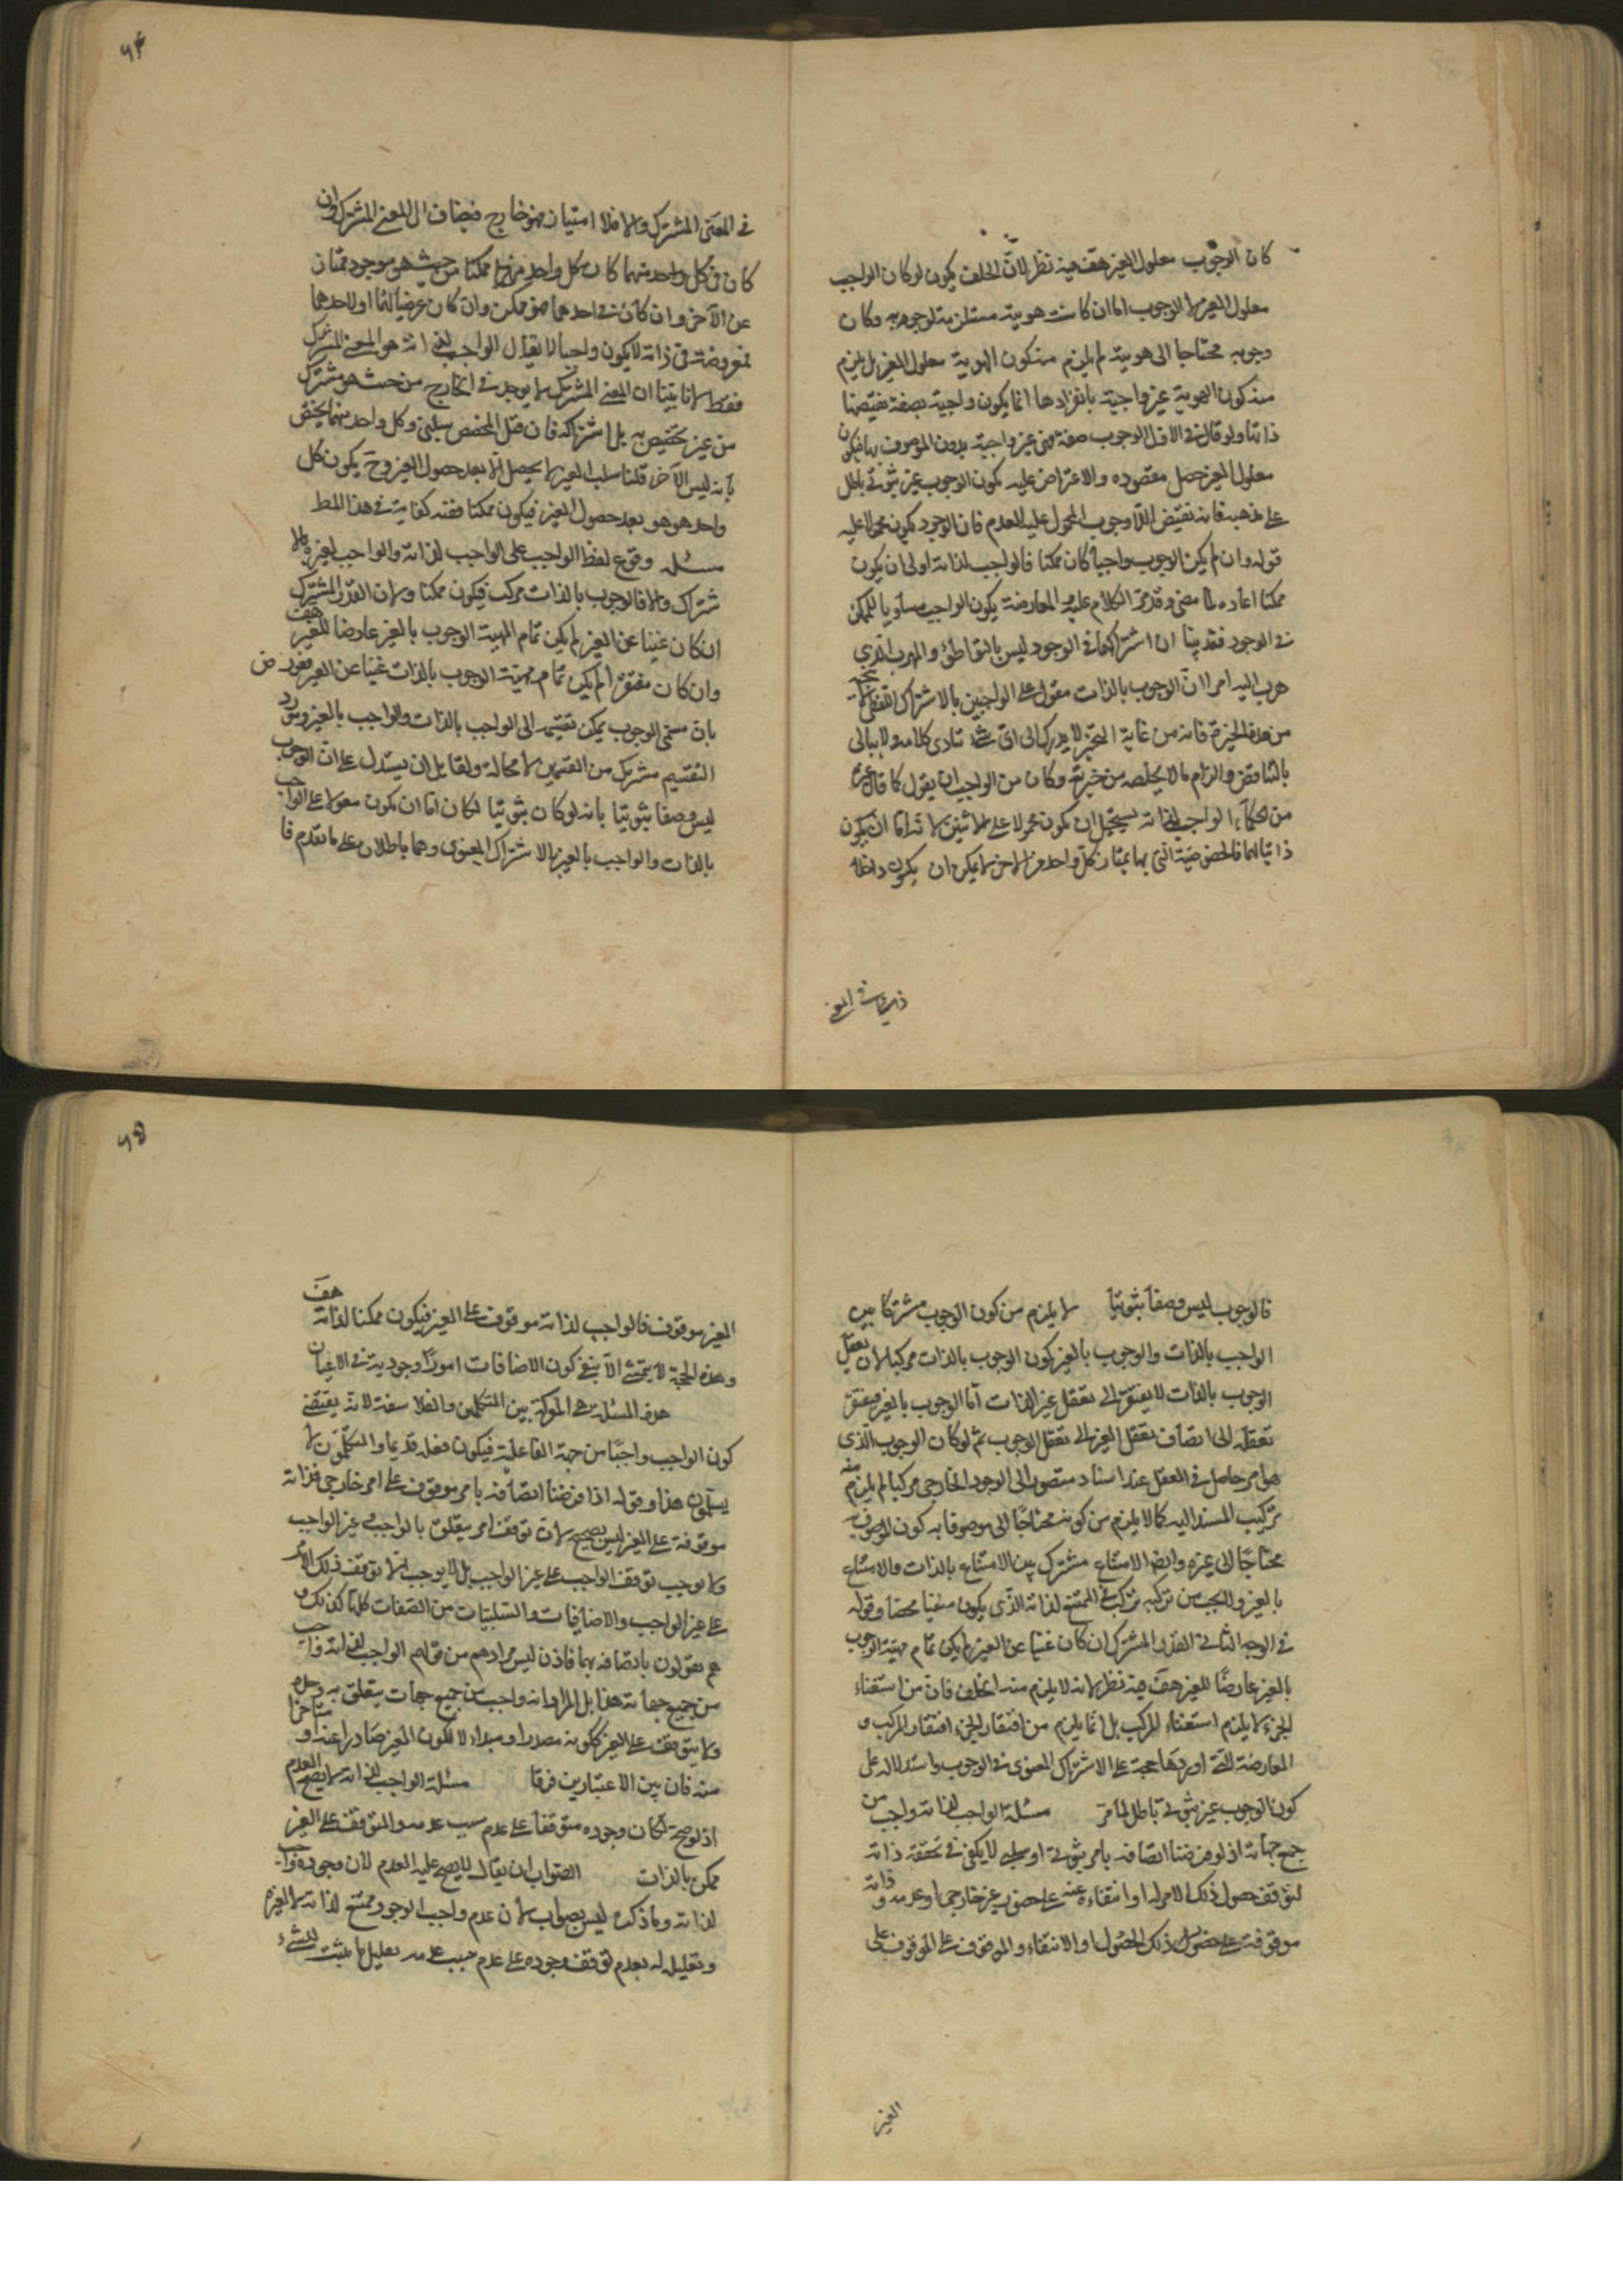 كان الوجوب معلول الغير هف فيه نظر لانّ الخلف يكون لو كان الواجب
معلول الغير لا الوجوب اما ان كانت هويته مستلزمة لوجوبه وكان
وجوبه محتاجا الى هويته لم يلزم منه كون الهوية معلول الغير بل يلزم
منه كون الهوية غير واجبة بانفرادها انما يكون واجبة بصفة تقتضيها
ذاتها ولو قال في الاول الوجوب صفة فهي غير واجبة بدون الموصوف بها فيكون
معلول الغير حصل مقصوده والاعتراض عليه بكون الوجوب غير ثبوتي باطل
على مذهبه فانه نقيض اللاوجوب المحمول عليه العدم فان الوجود يكون محمولا عليه
قوله وان لم يكن الوجوب واجبا كان ممكنا فالواجب لذاته اولى ان يكون
ممكنا اعاده لما مضى وقد مرّ الكلام عليه والمعارضة بكون الواجب مساويا للممكن
في الوجود فقد بينا ان اشتراكهما في الوجود ليس بالتواطؤ والمهرب الذي
هرب اليه امرا انّ الوجوب بالذات مقول على الواجبين بالاشتراك اللفظي
من هذه الحيرة فانه من غاية التحيّر لا يدرك الى اىّ شئ تنادى كلامه ولا يبالى
بالتناقض والزام ما لا يخلصه من حيرته وكان من الواجب ان يقول كما قال غيره
من الحكماء الواجب لذاته يستحيل ان يكون محمولا على الاثنين لانه اما ان يكون
ذاتيا لهما فالخصوصية التي بها يمتاز كل واحد من الاخر لا يمكن ان يكون داخله
في المعنى المشترك والا فلا امتياز فهو خارج فيضاف الى المعنى المشترك وان
كان في كل واحد منهما كان كل واحد منهما ممكنا من حيث هو موجود ممتاز
عن الآخر وان كان في احدهما فهو ممكن وان كان عرضيا لهما او لاحدهما
فمعروضه في ذاته لا يكون واجبا لا يقال الواجب لغى انه هو المعنى المشترك
فقط لانا بيّنا ان المعنى المشترك لا يوجد في الخارج من حيث هو مشترك
من غير تخصيص به بل اشتراكه فان قيل المخصص سلبي وكل واحد منهما يختص
بأنه ليس الآخر قلنا سلب الغير لا يحصل الا بعد حصول الغير وح يكون كل
واحد هو هو بعد حصول الغير فيكون ممكنا فقد كفاية في هذا المط
مسئله وقوع لفظ الواجب على الواجب لذاته والواجب لغيره بالا
شتراك والا فالوجوب بالذات مركب فيكون ممكنا ولان القدر المشترك
ان كان غنيا عن الغير لم يكن تمام الماهية الوجوب بالغير عارضا للغير هف
وان كان مفتقرا لم يكن تمام مهيّة الوجوب بالذات غنيا عن الغير فعورض
بان مسمى الوجوب يمكن تقسيمه الى الواجب بالذات والواجب بالغير ومورد
التقسيم مشترك من القسمين لا محالة ولقايل ان يستدل على انّ الوجوب
ليس وصفا ثبوتيا بانه لو كان ثبوتيا لكان اما ان يكون مقولا على الواجب
بالذات والواجب بالغير بالاشتراك المعنوى وهما باطلان على ما تقدم فا
فالوجوب ليس وصفا ثبوتيا لا يلزم من كون الوجوب مشتركا بين
الواجب بالذات والوجوب بالغير كون الوجوب بالذات مركبا لان تعقل
الوجوب بالذات لا يفتقر الى تعقل غير الذات اما الوجوب بالغير فيفتقر
تعقله الى انضاف تعقل الغير الى تعقل الوجوب ثم لو كان الوجوب الذى
هو امر حاصل في العقل عند اسناد متصور الى الوجود الخارجى مركبا لم يلزم منه
تركيب المسند اليه كما لا يلزم من كونه محتاجا الى موصوف به كون الموصوف به
محتاجا الى غيره وايضا الامتناع مشترك بين الامتناع بالذات والامتناع
بالغير ولا يجب من تركبه تركب في الممتنع لذاته الذى يكون منفيا محضا وقوله
في الوجه الثانى القدر المشترك ان كان غنيا عن الغير لم يكن تمام مهيّة الوجوب
بالغير عارضا للغير هف فيه نظر لانه لا يلزم منه الخلف فان من استغناء
الجزء لا يلزم استغناء المركب بل انما يلزم من افتقار الجزء افتقار المركب و
المعارضة التي اوردها حجة على الاشتراك المعنوى في الوجوب واستدلاله على
كون الوجوب غير ثبوتي باطل لما مرّ مسئله الواجب لذاته واجب من
جميع جهاته اذ لو فرضنا اتصافه بامر ثبوتي او سلبي لا يكفي في تحققه ذاته
لتوقف حصول ذلك الامر له او انتفاءه عنه على حضور غير خارجى او عدمه وذاته
موقوفة على حضول ذلك الحصول او الانتفاء والموقوف على الموقوف على
الغير
الغير موقوف فالواجب لذاته موقوف على الغير فيكون ممكنا لذاته هف
وهذه الحجة لا يتمشى الا بنفي كون الاضافات امورا وجودية في الاعيان
هذه المسئلة هي المعركة بين المتكلمين والفلاسفة لانه يقتضى
كون الواجب واجبا من جهة الفاعلية فيكون فعله قديما والمتكلمون لا
يسلمون هذا وقوله اذا فرضنا اتصافه بامر موقوف على امر خارجى فذاته
موقوفة على الغير ليس بصحيح لان توقف امر يتعلق بالواجب وغير الواجب
لا يوجب توقف الواجب على غير الواجب بل لا يوجب الا توقف ذلك الامر
على غير الواجب والاضافيات والسلبيات من الصفات كلها كذلك و
هم يقولون باتصافه بهما فاذن ليس مرادهم من قولهم الواجب لذاته واجب
من جميع جهاته هذا بل المراد انه واجب من جميع جهات يتعلق به وحده
ولا يتوقف على الغير ككونه مصدرا ومبداء لا ككون الغير صادرا عنه او متاخرا
منه فان بين الاعتبارين فرقا مسئلة الواجب لذاته لا يصح العدم
اذ لو صح لكان وجوده متوقفا على عدم سبب عدمه والمتوقف على الغير
ممكن بالذات الصواب ان يقال لا يصح عليه العدم لان وجوده واجب
لذاته وما ذكره ليس بصواب لان عدم واجب الوجود ممتنع لذاته لا لغيره
وتعليله له بعدم توقف وجوده على عدم سبب عدمه تعليل ما يثبت للشئ